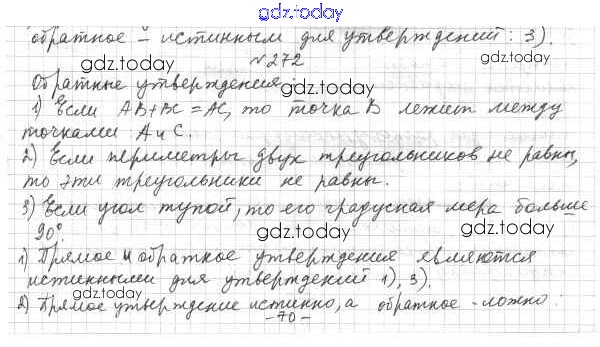 gdz.today
обратное – истинным для утверждений: 3).
№272
gdz.today gdz.today
Обратные утверждения:
1) Если AB+BC=AC, то точка B лежит между
точками A и C.
gdz.today gdz.today
2) Если периметры двух треугольников не равны,
то эти треугольники не равны.
3) Если угол тупой, то его градусная мера больше
90°
gdz.today gdz.today
1) Прямое и обратное утверждения являются
истинными для утверждений 1), 3).
gdz.today gdz.today
2) Прямое утверждение истинно, а обратное - ложно:
-70-
gdz.today